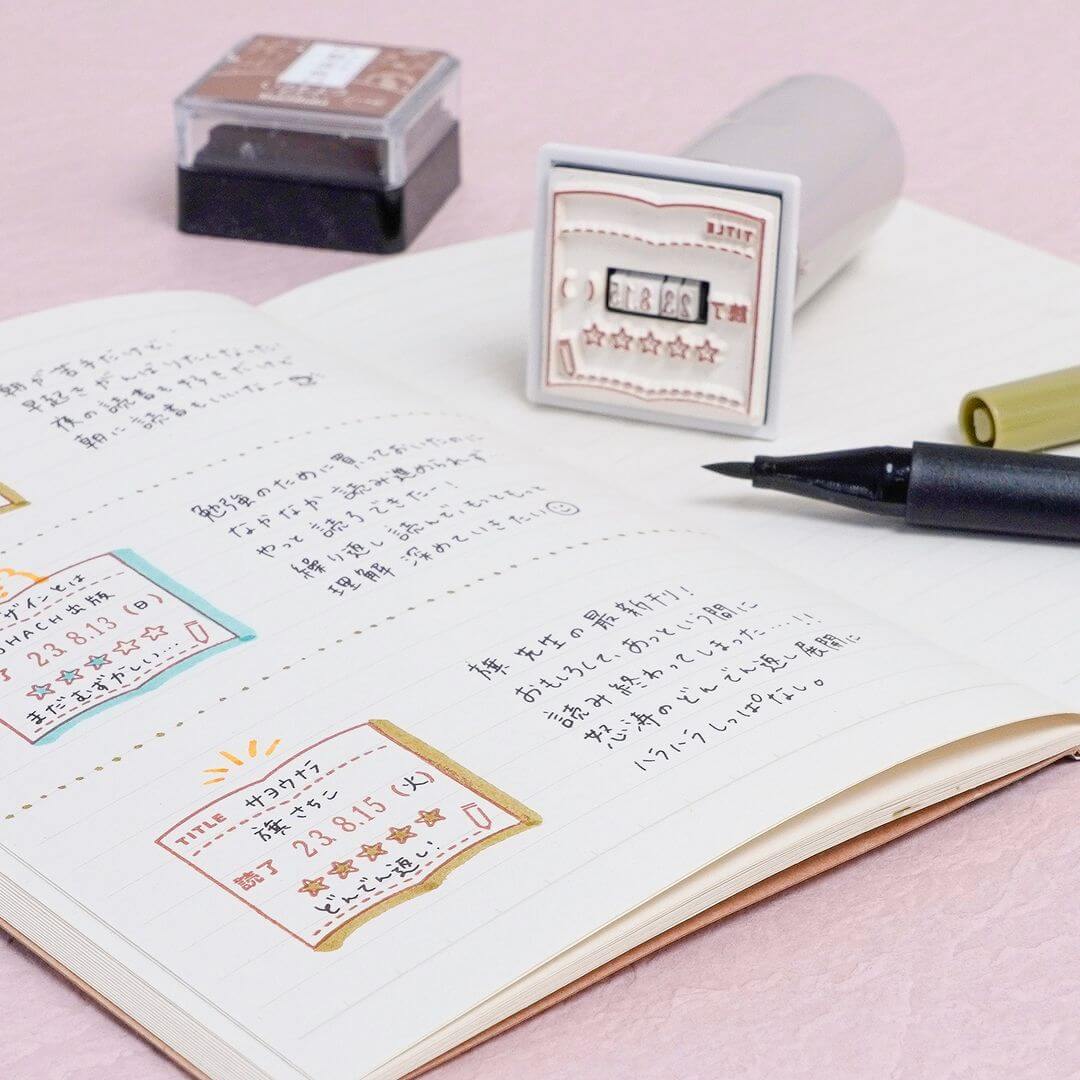 朝が苦手だけど、
早起きがんばりたくなった
夜の読書も好きだけど
朝に読書もいいなー
勉強のために買っておいたのに
なかなか読み進められず…
やっと読了できたー!
繰り返し読んで、もっともっと
理解深めていきたい
ザインとは
HACH出版
了 23.8.13 (日)
まだむずかしい…
旗先生の最新刊!
おもしろくて、あっという間に
読み終わってしまった…!!
怒涛のどんでん返し展開に
ハラハラしっぱなし。
TITLE サヨウナラ
旗さちこ
読了 23.8.15 (火)
どんでん返し!
TITLE
読了 23.8.15 ( )